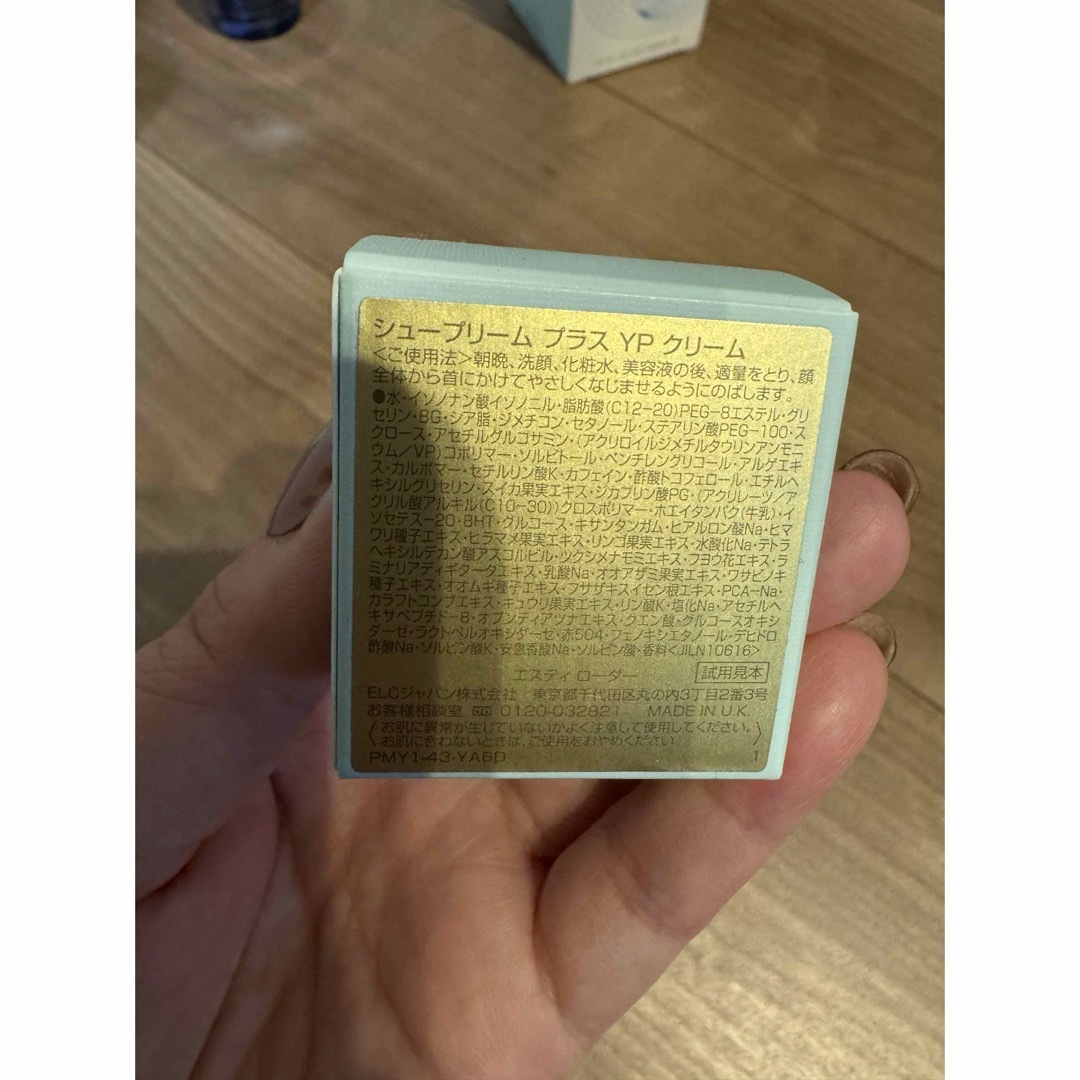 シュープリーム プラス YP クリーム
<ご使用法>朝晩、洗顔、化粧水、美容液の後、適量をとり、顔
全体から首にかけてやさしくなじませるようにのばします。
●水・イソノナン酸イソノニル・脂肪酸(C12-20)PEG-8エステル・グリ
セリン・BG・シア脂・ジメチコン・セタノール・ステアリン酸PEG-100・ス
クロース・アセチルグルコサミン・(アクリロイルジメチルタウリンアンモニ
ウム/VP)コポリマー・ソルビトール・ペンチレングリコール・アルゲエキ
ス・カルボマー・セチルリン酸K・カフェイン・酢酸トコフェロール・エチルヘ
キシルグリセリン・スイカ果実エキス・ジカプリン酸PG・(アクリレーツ/ア
クリル酸アルキル(C10-30))クロスポリマー・ホエイタンパク(牛乳)・イ
ソセテス-20・BHT・グルコース・キサンタンガム・ヒアルロン酸Na・ヒマ
ワリ種子エキス・ヒラマメ果実エキス・リンゴ果実エキス・水酸化Na・テトラ
ヘキシルデカン酸アスコルビル・ツクシメナモミエキス・フヨウ花エキス・ラ
ミナリアディギタータエキス・乳酸Na・オオアザミ果実エキス・ワサビノキ
種子エキス・オオムギ種子エキス・フサザキスイセン根エキス・PCA-Na・
カラフトコンブエキス・キュウリ果実エキス・リン酸K・塩化Na・アセチルヘ
キサペプチド-8・オプンティアツナエキス・クエン酸・グルコースオキシ
ダーゼ・ラクトペルオキシダーゼ・赤504・フェノキシエタノール・デヒドロ
酢酸Na・ソルビン酸K・安息香酸Na・ソルビン酸・香料<JILN10616>
エスティ ローダー 試用見本
ELCジャパン株式会社 東京都千代田区丸の内3丁目2番3号
お客様相談室 0120-032821 MADE IN U.K.
お肌に異常が生じていないかよく注意して使用してください。
お肌に合わないときは、ご使用をおやめください。
PMY1-43-YA6D 1